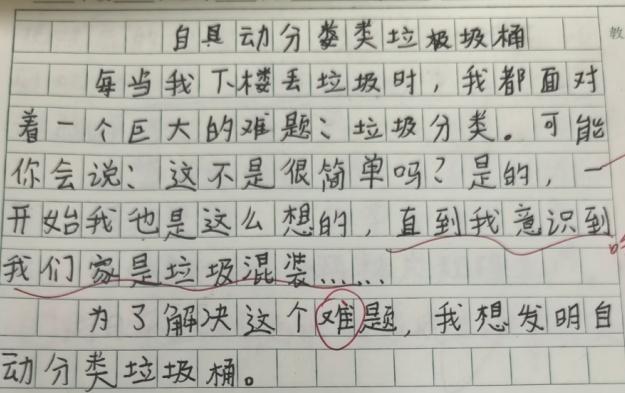 自具动分类类垃极圾桶
每当我下楼丢垃圾时，我都面对
着一个巨大的难题：垃圾分类。可能
你会说：这不是很简单吗？是的，一
开始我也是这么想的，直到我意识到
我们家是垃圾混装……
为了解决这个难题，我想发明自
动分类垃圾桶。
教